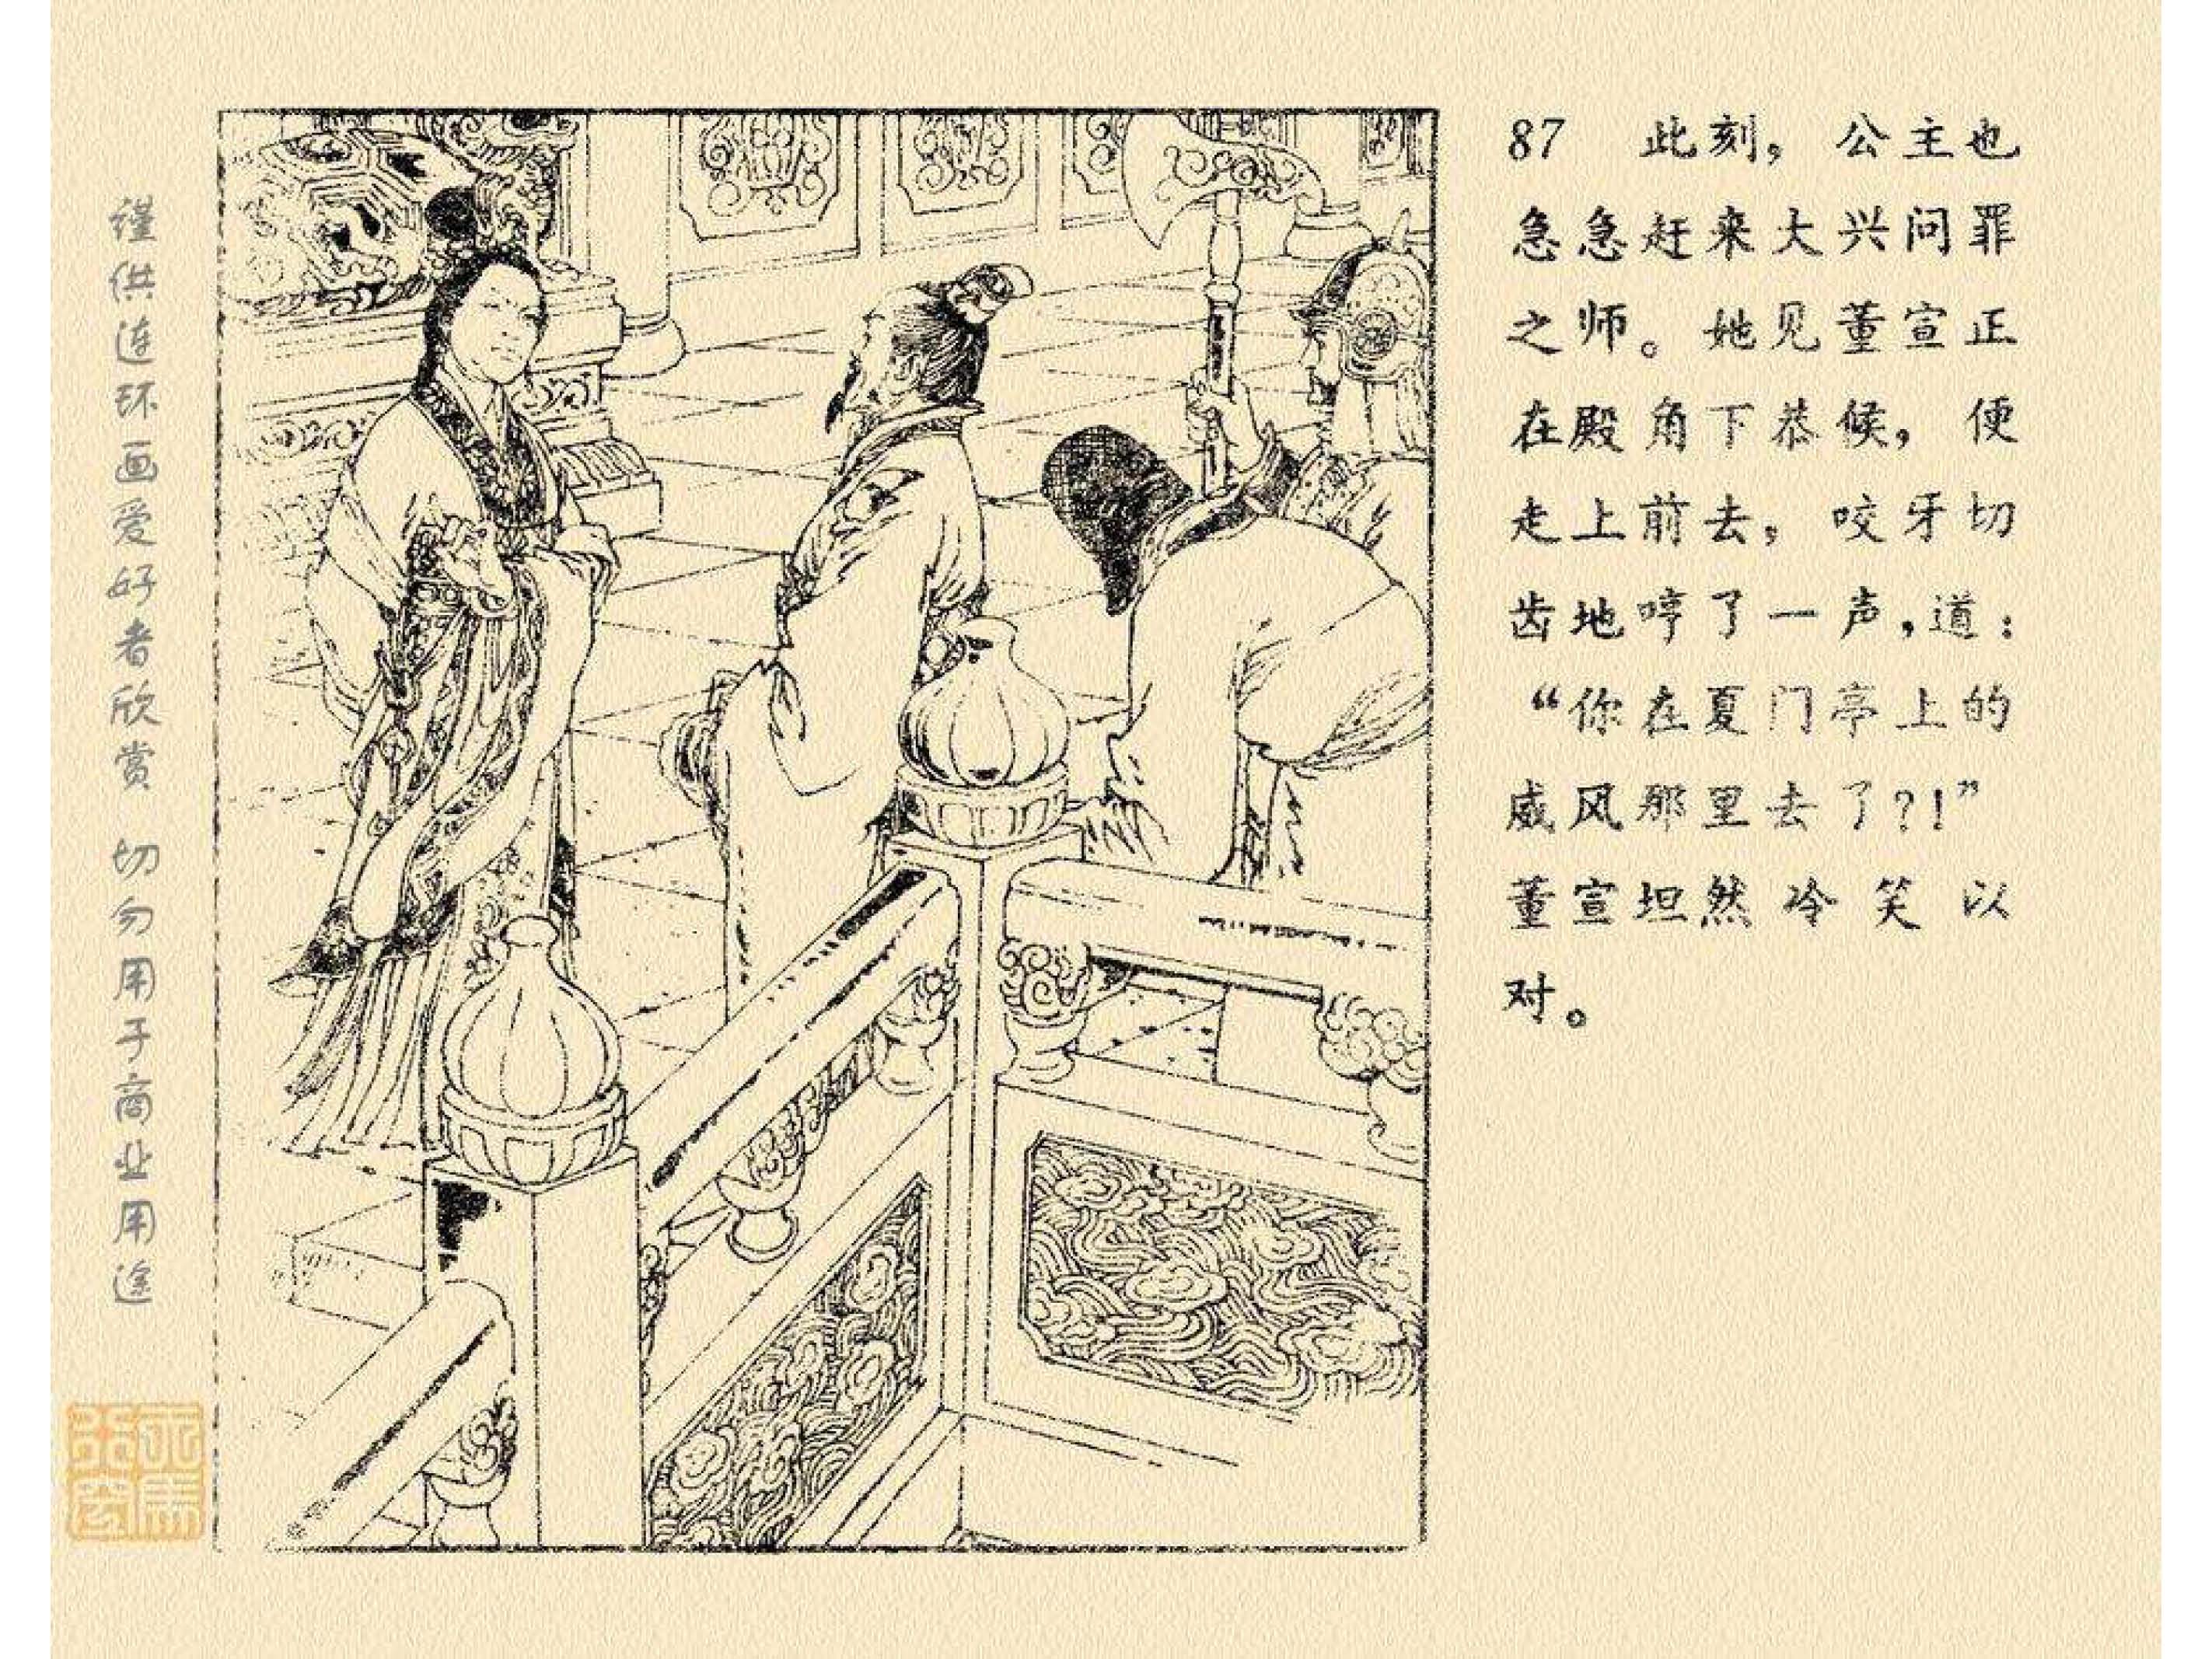 87 此刻，公主也
急急赶来大兴问罪
之师。她见董宣正
在殿角下恭候，便
走上前去，咬牙切
齿地哼了一声，道：
“你在夏门亭上的
威风那里去了？！”
董宣坦然冷笑以
对。
谨供连环画爱好者欣赏 切勿用于商业用途